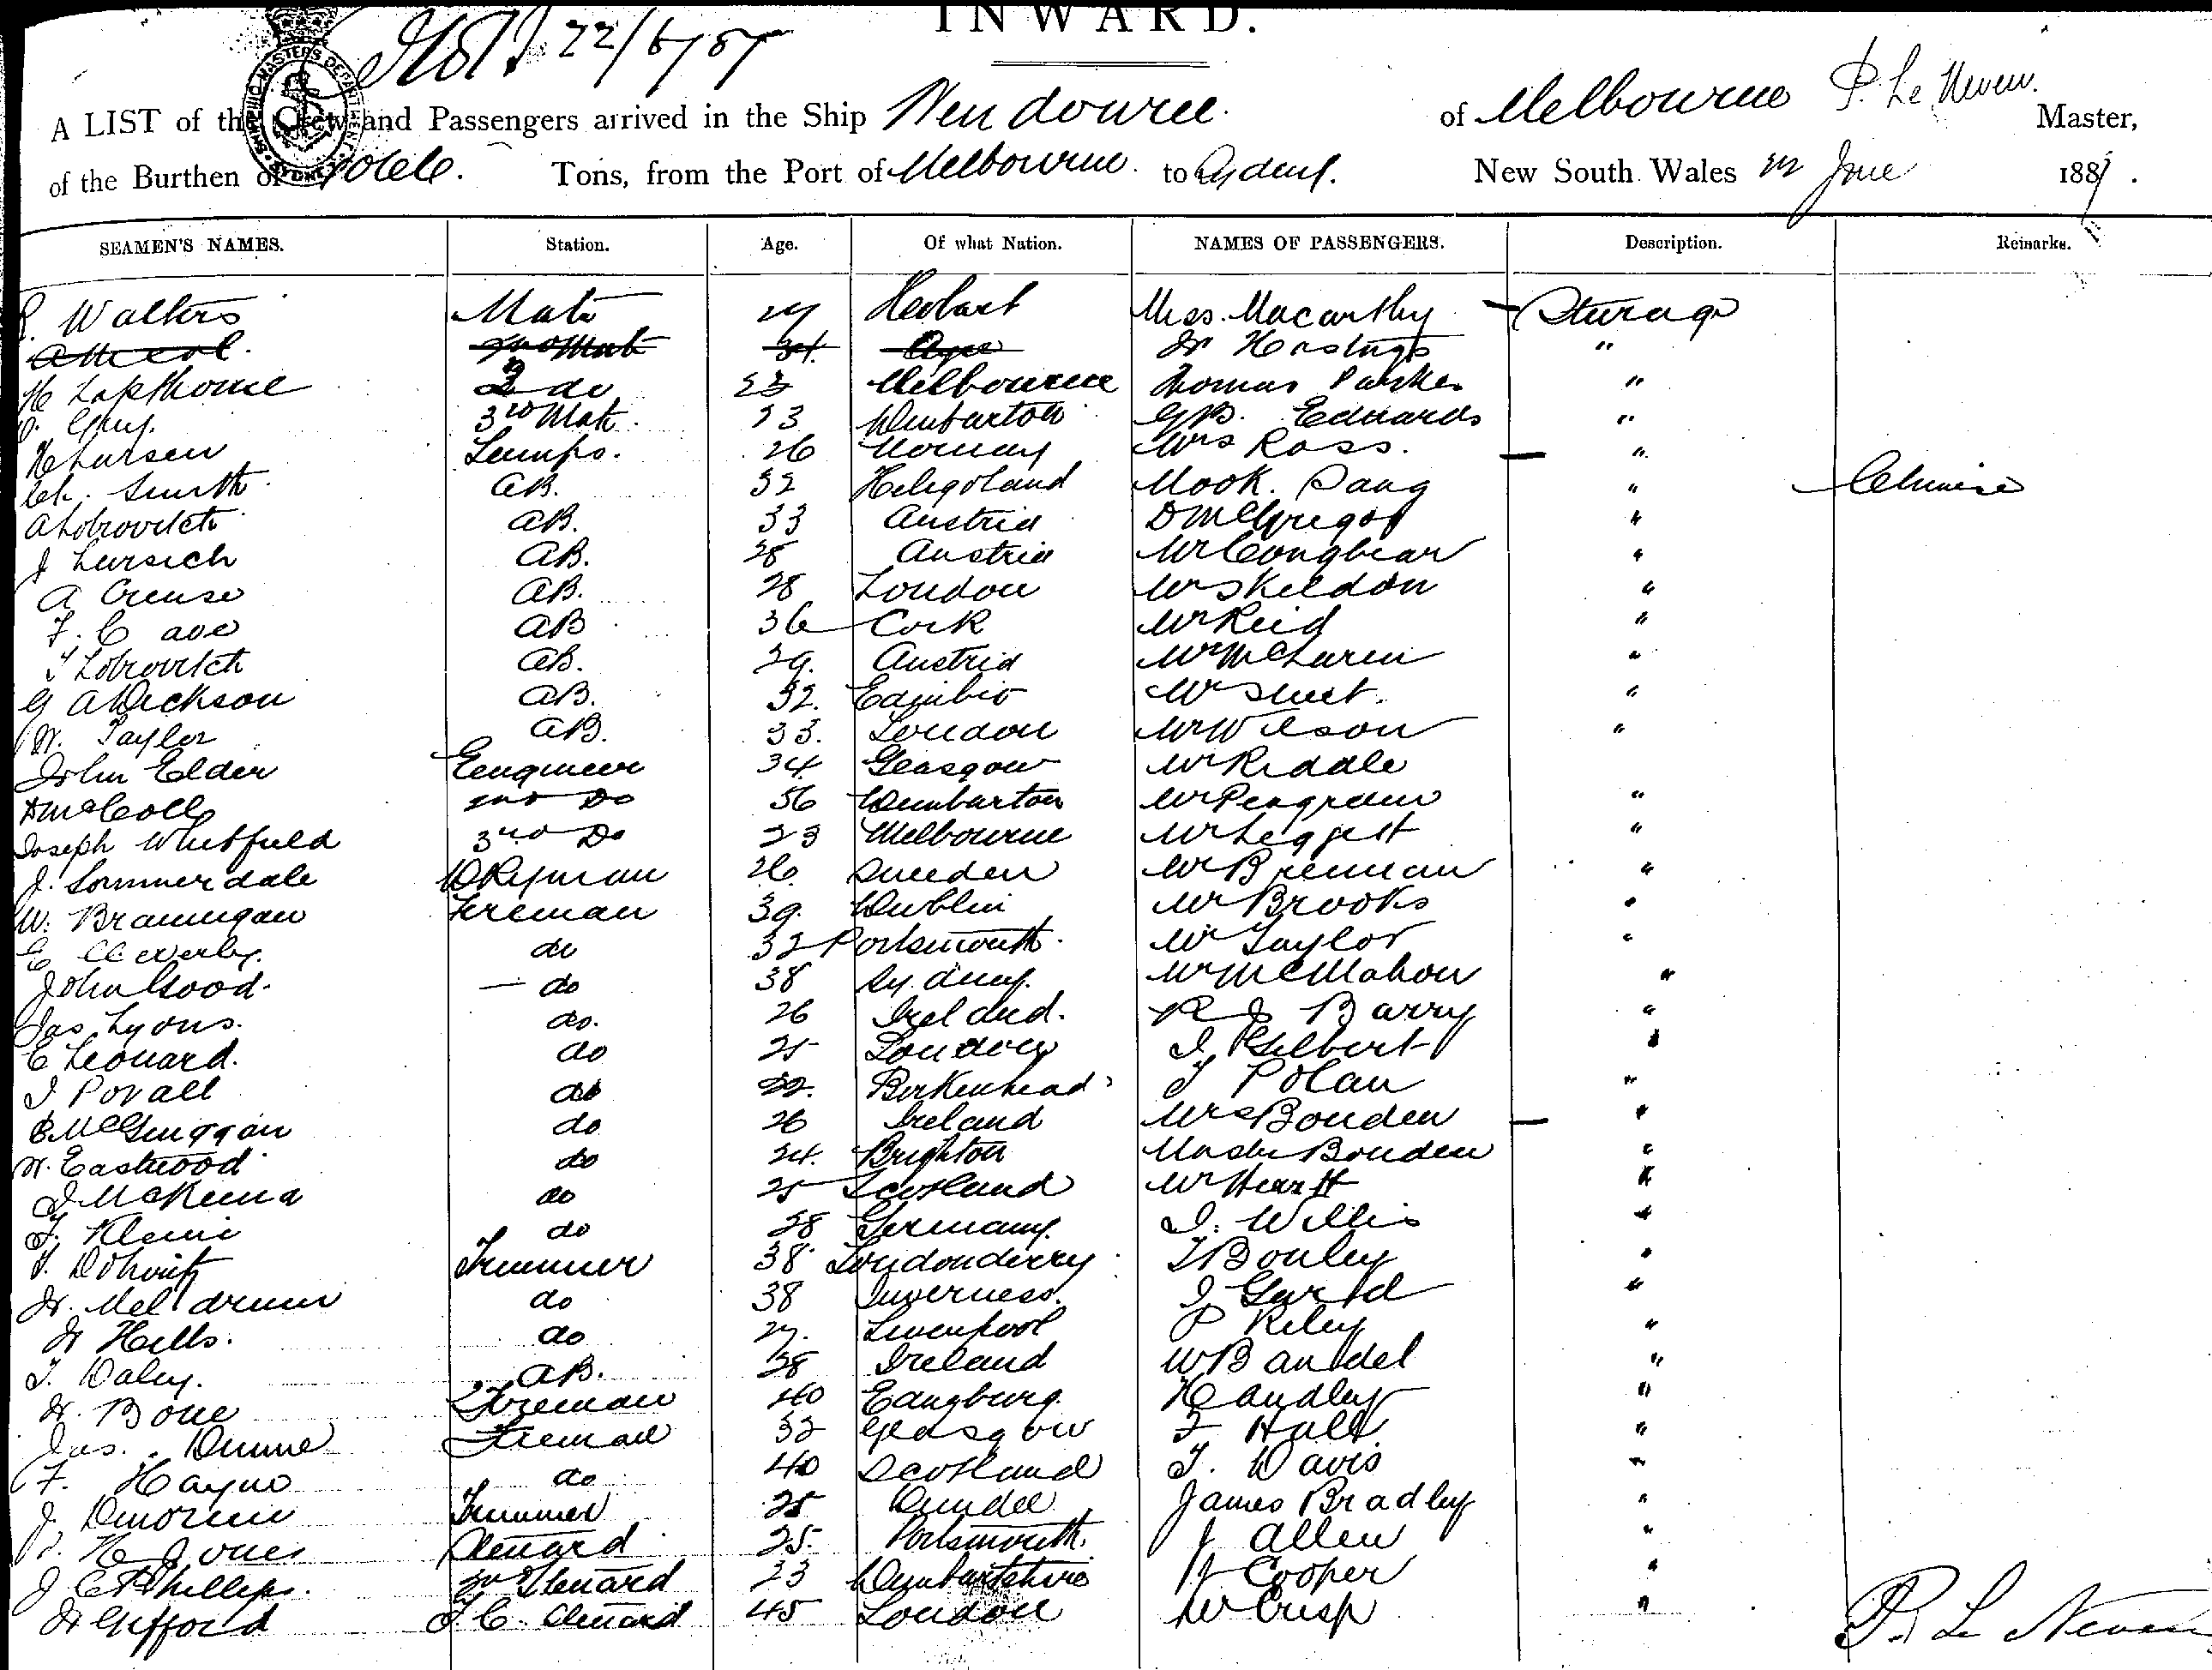 INWARD.
22/6/87
A LIST of the Crew and Passengers arrived in the Ship Wendouree. of Melbourne P. Le Neveu. Master,
of the Burthen of Tons, from the Port of Melbourne. to Sydney. New South Wales 22 June 1887.
SEAMEN'S NAMES. Station. Age. Of what Nation. NAMES OF PASSENGERS. Description. Remarks.
Walters Mate 29 Hobart Miss. Macarthy Steerage
2nd Mate 34 Ayr Hastings "
H Lapthorne 2 do 23 Melbourne Thomas Parker "
Guy. 3rd Mate 23 Dumbarton Edwards "
H Larsen Lamps. 26 Norway Mrs Ross. "
Ch. Smith AB. 32 Heligoland Mook. Sang " Chinese
A Lobrovitch AB. 33 Austria D McGregor "
J Lursich AB. 28 Austria Mr Congbear "
A Crense AB. 28 London Mr Skeldon "
F. Cave AB 36 Cork Mr Reid "
Lobrovitch AB. 29. Austria Mr McLaren "
G A Dickson AB. 32. Edinbro Mr Sweet. "
W. Taylor AB. 33. London Mr Wilson "
John Elder Engineer 34 Glasgow Mr Riddle
D McColl 2nd Do 36 Dumbarton Mr Peagram "
Joseph Whitfield 3rd Do 23 Melbourne Mr Leggett "
J. Sommerdale Dkyman 26 Sweden Mr Brennan "
W. Brannigan Fireman 39. Dublin Mr Brooks "
E Cleverly. do 32 Portsmouth. Mr Taylor "
John Good. do 38 Sydney. Mr McMahon "
Jas. Lyons. do. 26 Ireland. R J Barry "
E Leonard. do 25 London J Gilbert "
J Povall do 22. Birkenhead J Polan "
B McGuiggan do 26 Ireland Mrs Bouden "
W. Eastwood do 24. Brighton Master Bouden "
J McKenna do 25 Scotland Mr Hearst "
F. Kleine do 28 Germany. J. Willis "
Trimmer 38 Londonderry J Bouley "
W. Meldrum do 38 Inverness. "
W Hills. do 27. Liverpool P Riley "
J. Daley. AB. 28 Ireland W Bandel "
W. Bone Fireman 40 Handley "
Jas. Dunne Fireman 32 Glasgow F Hall "
F. Hayne do 40 Scotland J. Davis "
J. Trimmer 25 Dundee James Bradley "
H Jones Steward 25. Portsmouth. J Allen "
J C Phillips. 2nd Steward 23 Dumbartshire Cooper "
W Gifford F. C. Steward 45 London Mr Crisp "
P. Le Neveu